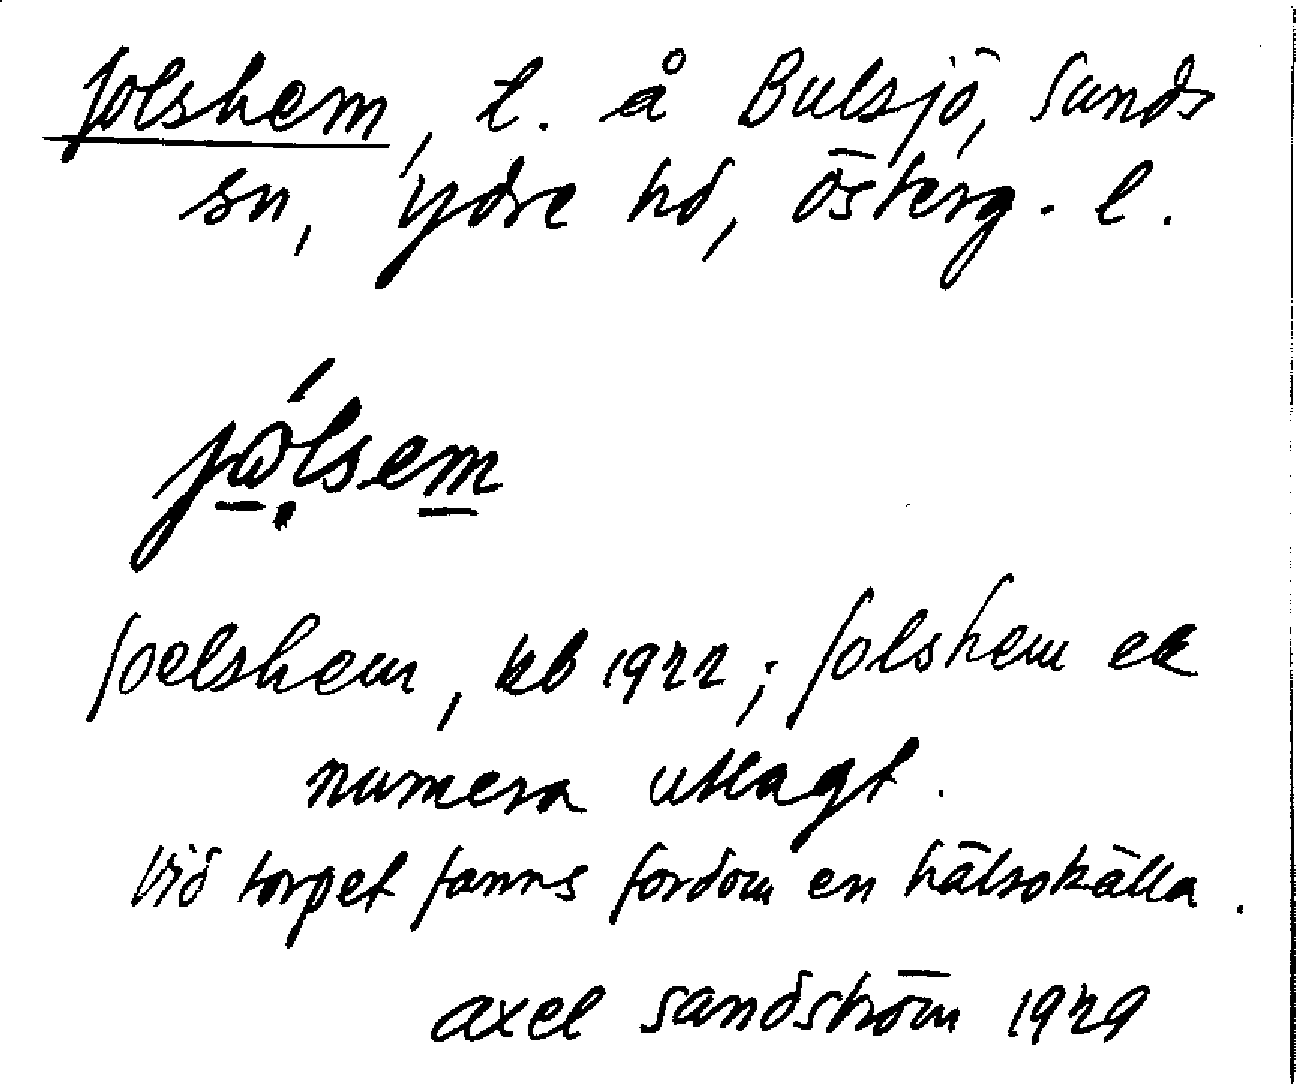 Jolshem, t. å Bulsjö, Sunds
sn, Ydre hd, Österg. l.
jώ̲lsem̲
Joelshem, kb 1922; Jolshem ek
numera utlagt.
Vid torpet fanns fordom en hälsokälla.
Axel Sandström 1929